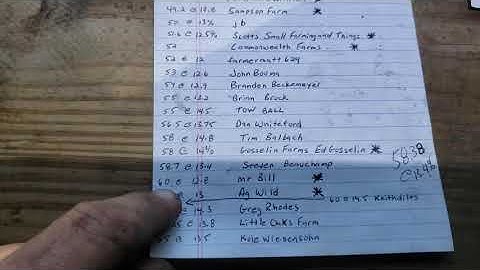 49.2 @ 12.8 Sampson Farm *
50 @ 13½ jb
51.6 @ 12.5% Scotts Small Farming and Things *
52 Commonwealth Farms *
52 @ 12 farmermatt 629
53 @ 12.6 John Bouma
54 @ 12.9 Brandon Beckemeyer
55 @ 13.2 Brian Brock
55 @ 14.5 TOW BALL
56.5 @ 13.75 Dan Whiteford
58 @ 14.8 Tim Balbach
58 @ 14% Gosselin Farms Ed Gosselin *
58.38
@ 13.40
58.7 @ 13.4 Steven Beauchamp
60 @ 12.8 Mr Bill *
13 Ag Wild *
60 @ 14.5 Keithdiles
@ 14.3 Greg Rhodes
@ 13.8 Little Oaks Farm
@ 13.5 Kole Wiebensohn